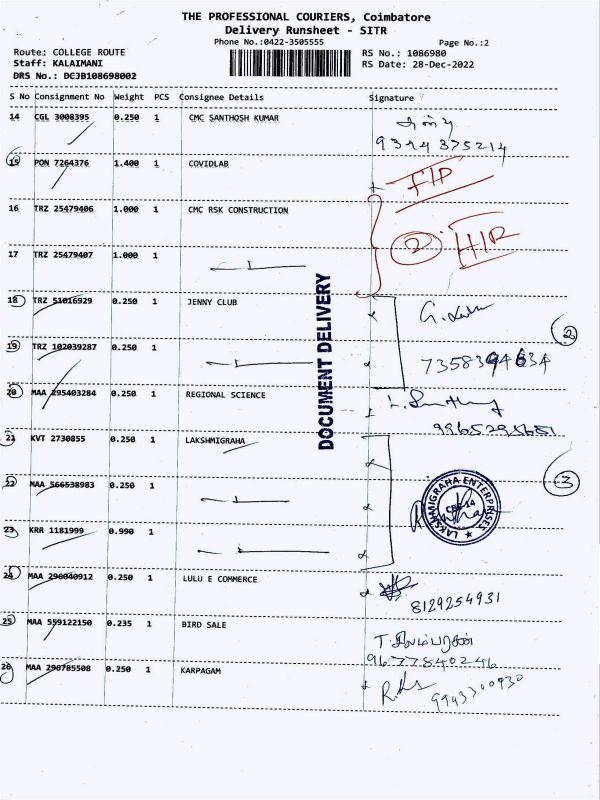 THE PROFESSIONAL COURIERS, Coimbatore
Delivery Runsheet - SITR
Phone No.:0422-3505555
Page No.:2
Route: COLLEGE ROUTE
RS No.: 1086980
Staff: KALAIMANI
RS Date: 28-Dec-2022
DRS No.: DCJB108698002
S No Consignment No Weight PCS Consignee Details Signature
14 CGL 3008395 0.250 1 CMC SANTHOSH KUMAR
9394375214
15 PON 7264376 1.400 1 COVIDLAB
FIP
16 TRZ 25479406 1.000 1 CMC RSK CONSTRUCTION
2
17 TRZ 25479407 1.000 1
18 TRZ 51016929 0.250 1 JENNY CLUB
2
19 TRZ 102039287 0.250 1
20 MAA 295403284 0.250 1 REGIONAL SCIENCE
21 KVT 2730855 0.250 1 LAKSHMIGRAHA
22 MAA 566538983 0.250 1
3
LAKSHMIGRAHA ENTERPRISES
CBE-14
23 KRR 1181999 0.990 1
24 MAA 296040912 0.250 1 LULU E COMMERCE
8129254931
25 MAA 559122150 0.235 1 BIRD SALE
9677840246
26 MAA 296785508 0.250 1 KARPAGAM
9943300930
DOCUMENT DELIVERY